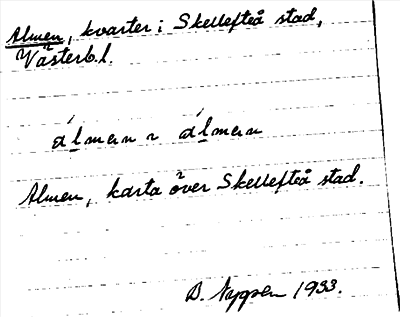 Almen, kvarter i Skellefteå stad,
Västerb.l.
álmen ~ álmen
Almen, karta över Skellefteå stad.
B. 1933.